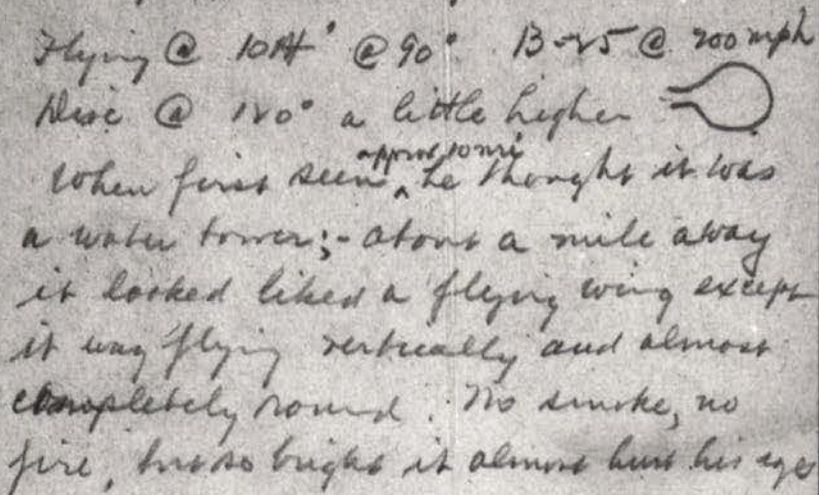 Flying @ 10M' @ 90° B-25 @ 200 mph
Disc @ 120° a little higher
approx 10 mi
When first seen ^ he thought it was
a water tower; - about a mile away
it looked liked a flying wing except
it way flying vertically and almost
completely round. No smoke, no
fire, but so bright it almost hurt his eyes